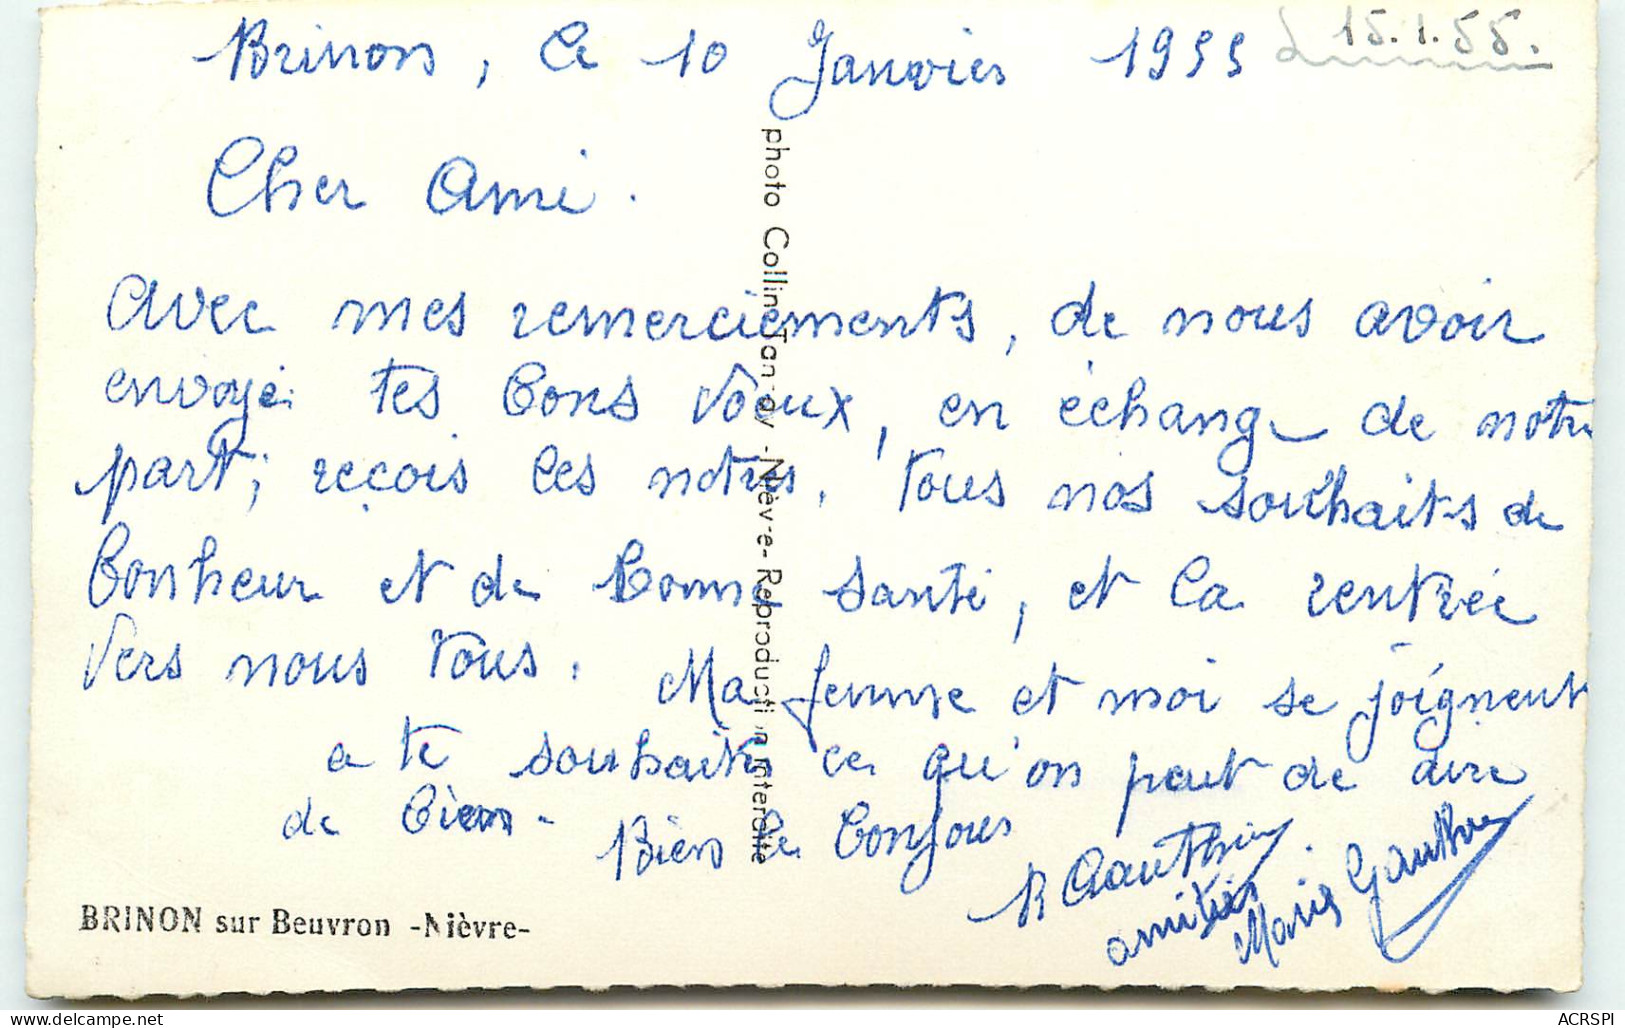 Brinon, le 10 Janvier 1955
15.1.55.
Cher Ami.
Avec mes remerciements, de nous avoir
envoyé tes bons voeux, en échange de notre
part, reçois les notres. Tous nos souhaits de
bonheur et de bonne santé, et la rentrée
vers nous tous. Ma femme et moi se joignent
a te souhaiter ce qu'on peut de dire
de bien - Bien le bonjour
R Gauthier.
amitiés
Marie Gauthier
photo Collin Tannay -Nièvre- Reproduction interdite
BRINON sur Beuvron -Nièvre-
ACRSPI